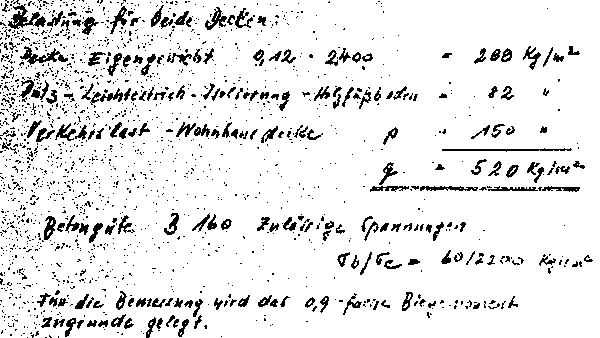 Belastung für beide Decken:
Decke Eigengewicht 0,12 · 2400 = 288 Kg/m²
Putz - Leichtestrich - Isolierung - Holzfußboden = 82 "
Verkehrslast - Wohnhausdecke p = 150 "
q = 520 Kg/m²
Betongüte B 160 Zulässige Spannungen
σb/σe = 60/2200 Kg/cm²
Für die Bemessung wird das 0,9-fache Biegemoment
zugrunde gelegt.